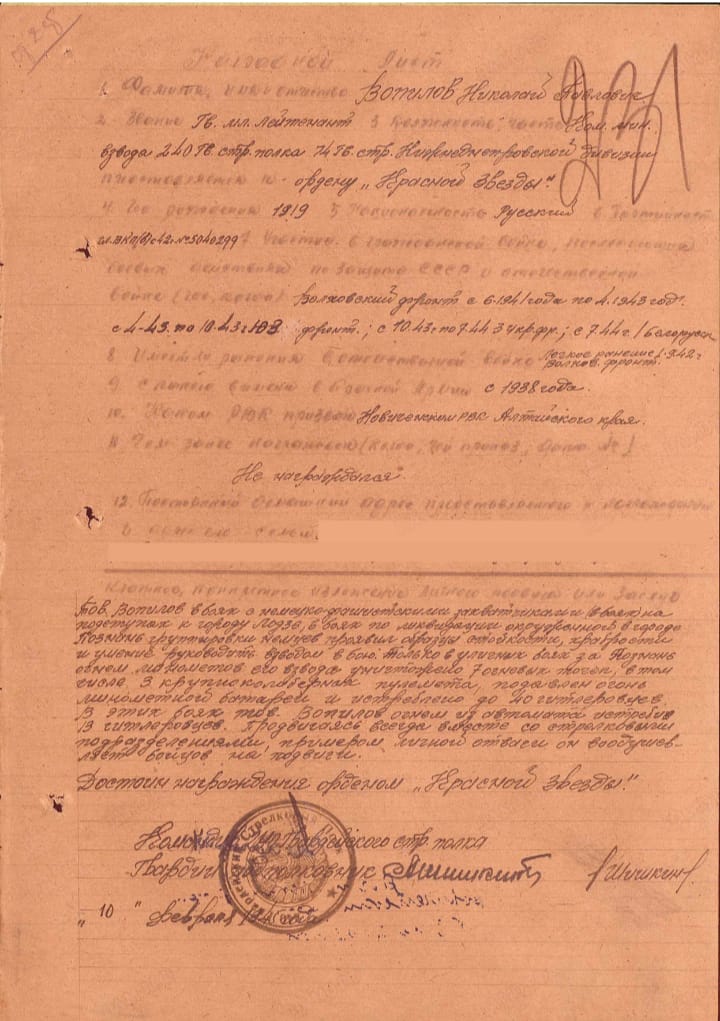 Наградной Лист
1. Фамилия, имя и отчество Вопилов Николай Павлович
2. Звание Гв. мл. лейтенант 3 Должность, часть Ком. мин.
взвода 240 Гв. стр. полка 74 Гв. стр. Нижнеднепровской дивизии
представляется к ордену „Красной Звезды".
4. Год рождения 1919 5 Национальность Русский 6 Партийность
чл. ВКП(б) с 42г. № 5040299 7 Участие в гражданской войне, последующих
боевых действиях по защите СССР и отечественной
войне (где, когда) Волховский фронт с 6.1941 года по 4.1943 год.
с 4-43. по 10.43 г ЮЗ фронт.; с 10.43г. по 7.44 3 укр. фр.; с 7.44 г. 1 Белорусск
8. Имеет ли ранения в отечественной войне Легкое ранение 42 г
Волхов. фронт.
9. С какого времени в Красной Армии с 1938 года.
10. Каким РВК призван РВК Алтайского края.
11. Чем ранее награжден (когда,
Не награждался
12. Постоянный домашний адрес представляемого к награждению
и адрес его семьи
Краткое, конкретное изложение личного подвига или заслуг
Тов. Вопилов в боях с немецко-фашистскими захватчиками (в боях) на
подступах к городу Лодзь, в боях по ликвидации окруженной в городе
Познань группировки немцев проявил образцы стойкости, храбрости
и умение руководить взводом в бою. Только в уличных боях за Познань
огнем минометов его взвода уничтожено 7 огневых точек, в том
числе 3 крупнокалиберных пулемета, подавлен огонь
минометной батареи и истреблено до 40 гитлеровцев
В этих боях тов. Вопилов огнем из автомата истребил
13 гитлеровцев. Продвигаясь всегда вместе со стрелковыми
подразделениями, примером личной отваги он воодушев-
ляет бойцов на подвиги.
Достоин награждения орденом „Красной Звезды".
Командир Гвардейского стр. полка
Гвардии подполковник Шишкин
„ 10 " февраля